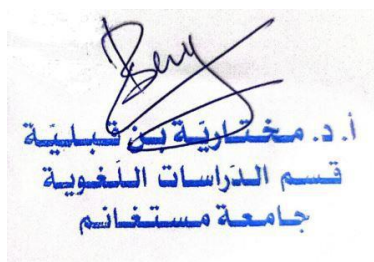 أ. د. مختاريّة بن قبليّة
قسم الدّراسات اللّغوية
جامعة مستغانم